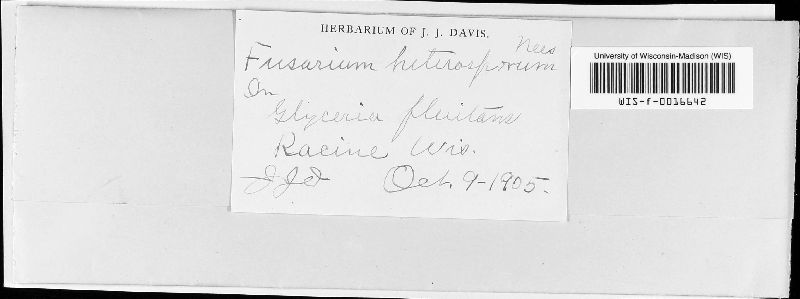 HERBARIUM OF J. J. DAVIS.
Fusarium heterosporum Nees
On
Glyceria fluitans
Racine Wis.
JJD Oct. 9-1905.
University of Wisconsin-Madison (WIS)
WIS-f-0016642